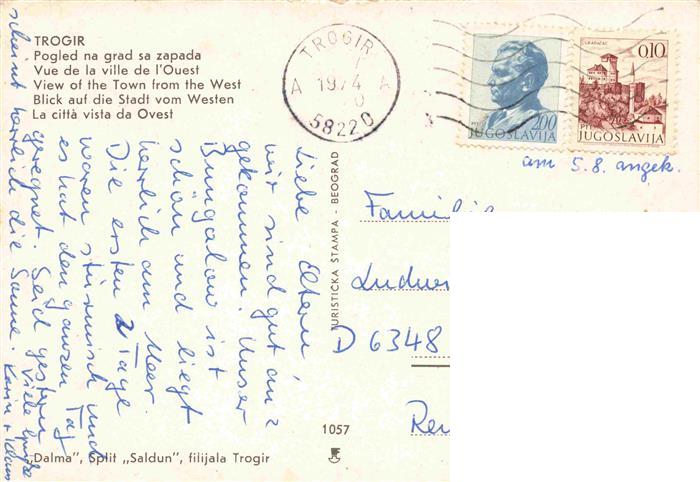 TROGIR
Pogled na grad sa zapada
Vue de la ville de l'Ouest
View of the Town from the West
Blick auf die Stadt vom Westen
La città vista da Ovest
TROGIR
A 1974 A
58220
2.00
JUGOSLAVIJA
GRADAČAC
0.10
JUGOSLAVIJA
am 5.8. angek.
Familie
Ludw
D 6348
Ren
TURISTICKA STAMPA - BEOGRAD
1057
Liebe Eltern,
wir sind gut an=
gekommen. Unser
Bungalow ist
schön und liegt
herrlich am Meer.
Die ersten 2 Tage
waren stürmisch und
es hat den ganzen Tag
geregnet. Seid gestern
scheint herrlich die Sonne.
Viele Grüße
Karin + Klaus
„Dalma", Split „Saldun", filijala Trogir